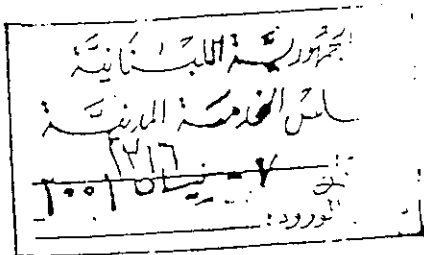 الجمهوريّة اللبنانيّة
مجلس الخدمة المدنيّة
٢٢١٦
٧ - نيسان ٢٠٠١
الورود: